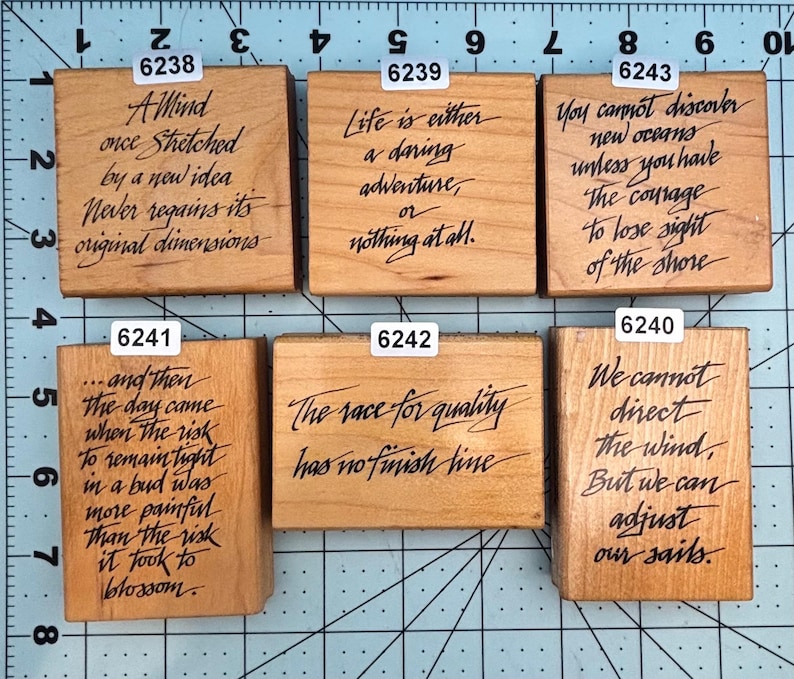 1 2 3 4 5 6 7 8 9 10
1
2
3
4
5
6
7
8
6238
A Mind
once Stretched
by a new idea
Never regains its
original dimensions
6239
Life is either
a daring
adventure,
or
nothing at all.
6243
You cannot discover
new oceans
unless you have
the courage
to lose sight
of the shore
6241
...and then
the day came
when the risk
to remain tight
in a bud was
more painful
than the risk
it took to
blossom.
6242
The race for quality
has no finish line
6240
We cannot
direct
the wind,
But we can
adjust
our sails.